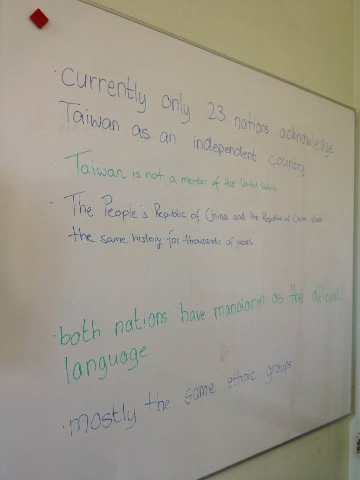 · currently only 23 nations acknowledge
Taiwan as an independent country
· Taiwan is not a member of the United Nations
- The People's Republic of China and the Republic of China share
the same history for thousands of years
· both nations have mandarin as the official
language
· mostly the same ethnic groups